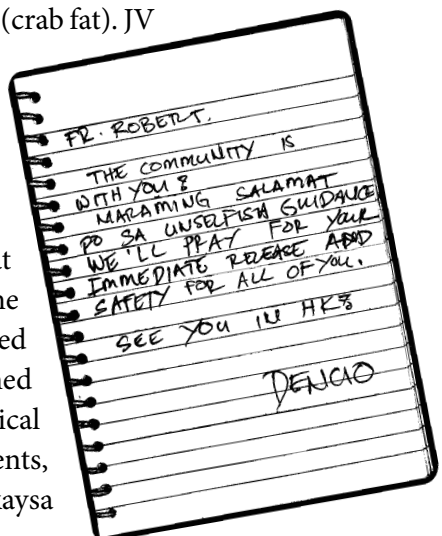 (crab fat). JV
FR. ROBERT,
THE COMMUNITY IS
WITH YOU!
MARAMING SALAMAT
PO SA UNSELFISH GUIDANCE
WE'LL PRAY FOR YOUR
IMMEDIATE RELEASE AND
SAFETY FOR ALL OF YOU.
SEE YOU IN HK!
DENCIO
at
ne
ed
ned
ical
ents,
kaysa